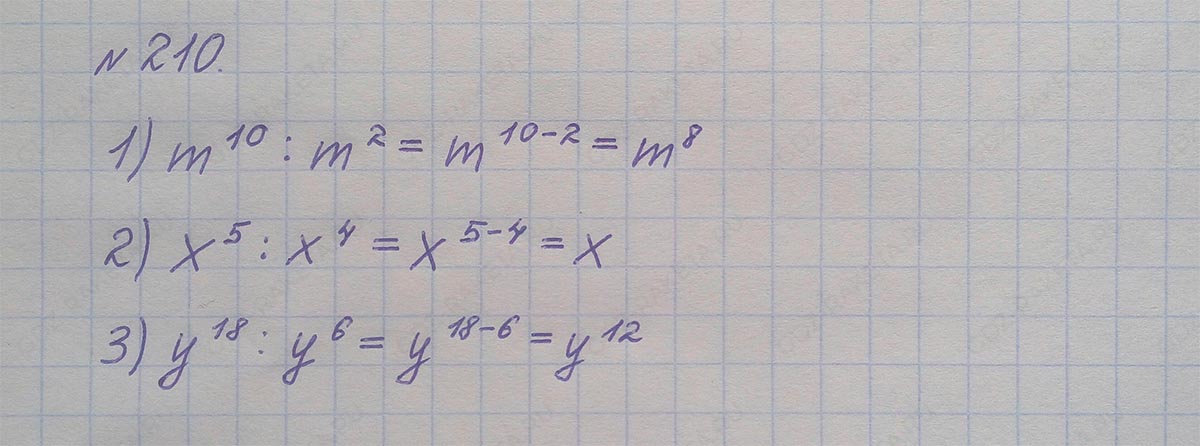 N 210.
1) m¹⁰ : m² = m¹⁰⁻² = m⁸
2) x⁵ : x⁴ = x⁵⁻⁴ = x
3) y¹⁸ : y⁶ = y¹⁸⁻⁶ = y¹²